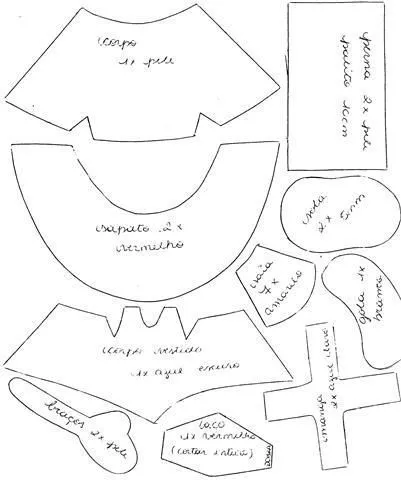 corpo
1x pele
perna 2x pele
palito 10cm
sapato 2x
vermelho
sola
2x 5mm
saia
7x
amarelo
gola 1x
branco
corpo vestido
1x azul escuro
manga
2x azul claro
braços 2x pele
laço
1x vermelho
(cortar inteiro)